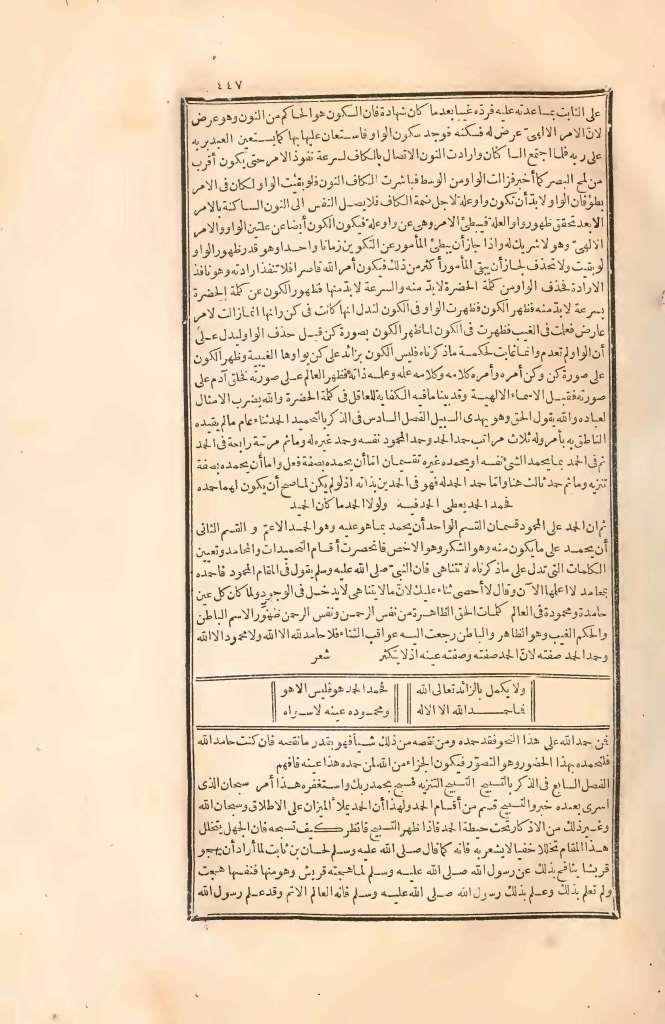 ٤٤٧
على الثابت بمساعدته عليه فرده غيبا بعد ما كان شهادة فان السكون هو الحاكم من النون وهو عرض
لان الامر الالهى عرض له فسكنه فوجد سكون الواو فاستعان عليها بها كما يستعين العبد بربه
على ربه فلما اجتمع الساكنان وارادت النون الاتصال بالكاف لسرعة نفوذ الامر حتى يكون أقرب
من لمح البصر كما أخبر فزالت الواو من الوسط فباشرت الكاف النون فلو بقيت الواو لكان فى الامر
بطؤ فان الواو لابد أن تكون واو علة لاجل ضمة الكاف فلا يصل النفس الى النون الساكنة بالامر
الا بعد تحقق ظهور واو العلة فيبطئ الامر وهى عن واو علة فيكون الكون أيضا عن علتين الواو والامر
الالهى وهو لا شريك له واذا جاز أن يبطئ المأمور عن التكوين زمانا واحدا وهو قدر ظهور الواو
لو بقيت ولا تحذف لجاز أن يبقى المأمور أكثر من ذلك فيكون أمر الله قاصرا فلا تنفذ ارادته وهو نافذ
الارادة فحذف الواو من كلمة الحضرة لابد منه والسرعة لابد منها فظهور الكون عن كلمة الحضرة
بسرعة لابد منه فظهر الكون فظهرت الواو فى الكون لتدل انها كانت فى كن وانها انما زالت لامر
عارض فعملت فى الغيب فظهرت فى الكون لما ظهر الكون بصورة كن قبل حذف الواو ليدل على
أن الواو لم تعدم وانما غابت لحكمة ما ذكرناه فليس الكون بزائد على كن بواوها الغيبية وظهر الكون
على صورة كن وكن أمره وأمره كلامه وكلامه علمه وعلمه ذاته فظهر العالم على صورته فخلق آدم على
صورته فقبل الاسماء الالهية وقد بينا ما فيه الكفاية للعاقل فى كلمة الحضرة والله يضرب الامثال
لعباده والله يقول الحق وهو يهدى السبيل الفصل السادس فى الذكر بالتحميد الحمد ثناء عام ما لم يقيده
الناطق به بأمر وله ثلاث مراتب حمد الحمد وحمد المحمود نفسه وحمد غيره له وما ثم مرتبة رابعة فى الحمد
ثم فى الحمد بما يحمد الشئ نفسه أو يحمده غيره تقسيمان اما أن يحمده بصفة فعل واما أن يحمده بصفة
تنزيه وما ثم حمد ثالث هنا واما حمد الحمد له فهو فى الحمدين بذاته اذ لو لم يكن لما صح أن يكون لهما حمده
فحمد الحمد يعطى الحمد فيه ولولا الحمد ما كان الحميد
ثم ان الحمد على المحمود قسمان القسم الواحد أن يحمد بما هو عليه وهو الحمد الاعم و القسم الثانى
أن يحمد على ما يكون منه وهو الشكر وهو الاخص فانحصرت أقسام التحميدات والمحامد وتعيين
الكلمات التى تدل على ما ذكرناه لا تتناهى فان النبى صلى الله عليه وسلم يقول فى المقام المحمود فاحمده
بمحامد لا أعلمها الآن وقال لا أحصى ثناء عليك لان ما لا يتناهى لا يدخل فى الوجود ولما كان كل عين
حامدة ومحمودة فى العالم كلمات الحق الظاهرة من نفس الرحمن ونفس الرحمن ظهور الاسم الباطن
والحكم الغيب وهو الظاهر والباطن رجعت اليه عواقب الثناء فلا حامد لله الا الله ولا محمود الا الله
وحمد الحمد صفته لان الحمد صفته وصفته عينه اذ لا يتكثر شعر
ولا يكمل بالزائد تعالى الله فحمد الحمد هو فليس الا هو
فما حمد الله الا الاله ومحموده عينه لا سواه
فمن حمد الله على هذا النحو فقد حمده ومن نقصه من ذلك شيأ فهو بقدر ما نقصه فان كنت حامد الله
فلتحمده بهذا الحضور وهو التصور فيكون الجزاء من الله لمن حمده هذا عينه فافهم
الفصل السابع فى الذكر بالتسبيح التسبيح التنزيه فسبح بحمد ربك واستغفره هذا أمر سبحان الذى
اسرى بعبده خبر والتسبيح قسم من أقسام الحمد ولهذا أن الحمد يملأ الميزان على الاطلاق وسبحان الله
وغير ذلك من الاذكار تحت حيطة الحمد فاذا ظهر التسبيح فانظر كيف تسبحه فان الجهل يتخلل
هذا المقام تخللا خفيا لا يشعر به فانه كما قال صلى الله عليه وسلم لحسان بن ثابت لما أراد أن يهجو
قريشا ينافح بذلك عن رسول الله صلى الله عليه وسلم لما هجته قريش وهو منها فنفسها هجت
ولم تعلم بذلك وعلم بذلك رسول الله صلى الله عليه وسلم فانه العالم الاتم وقد علم رسول الله